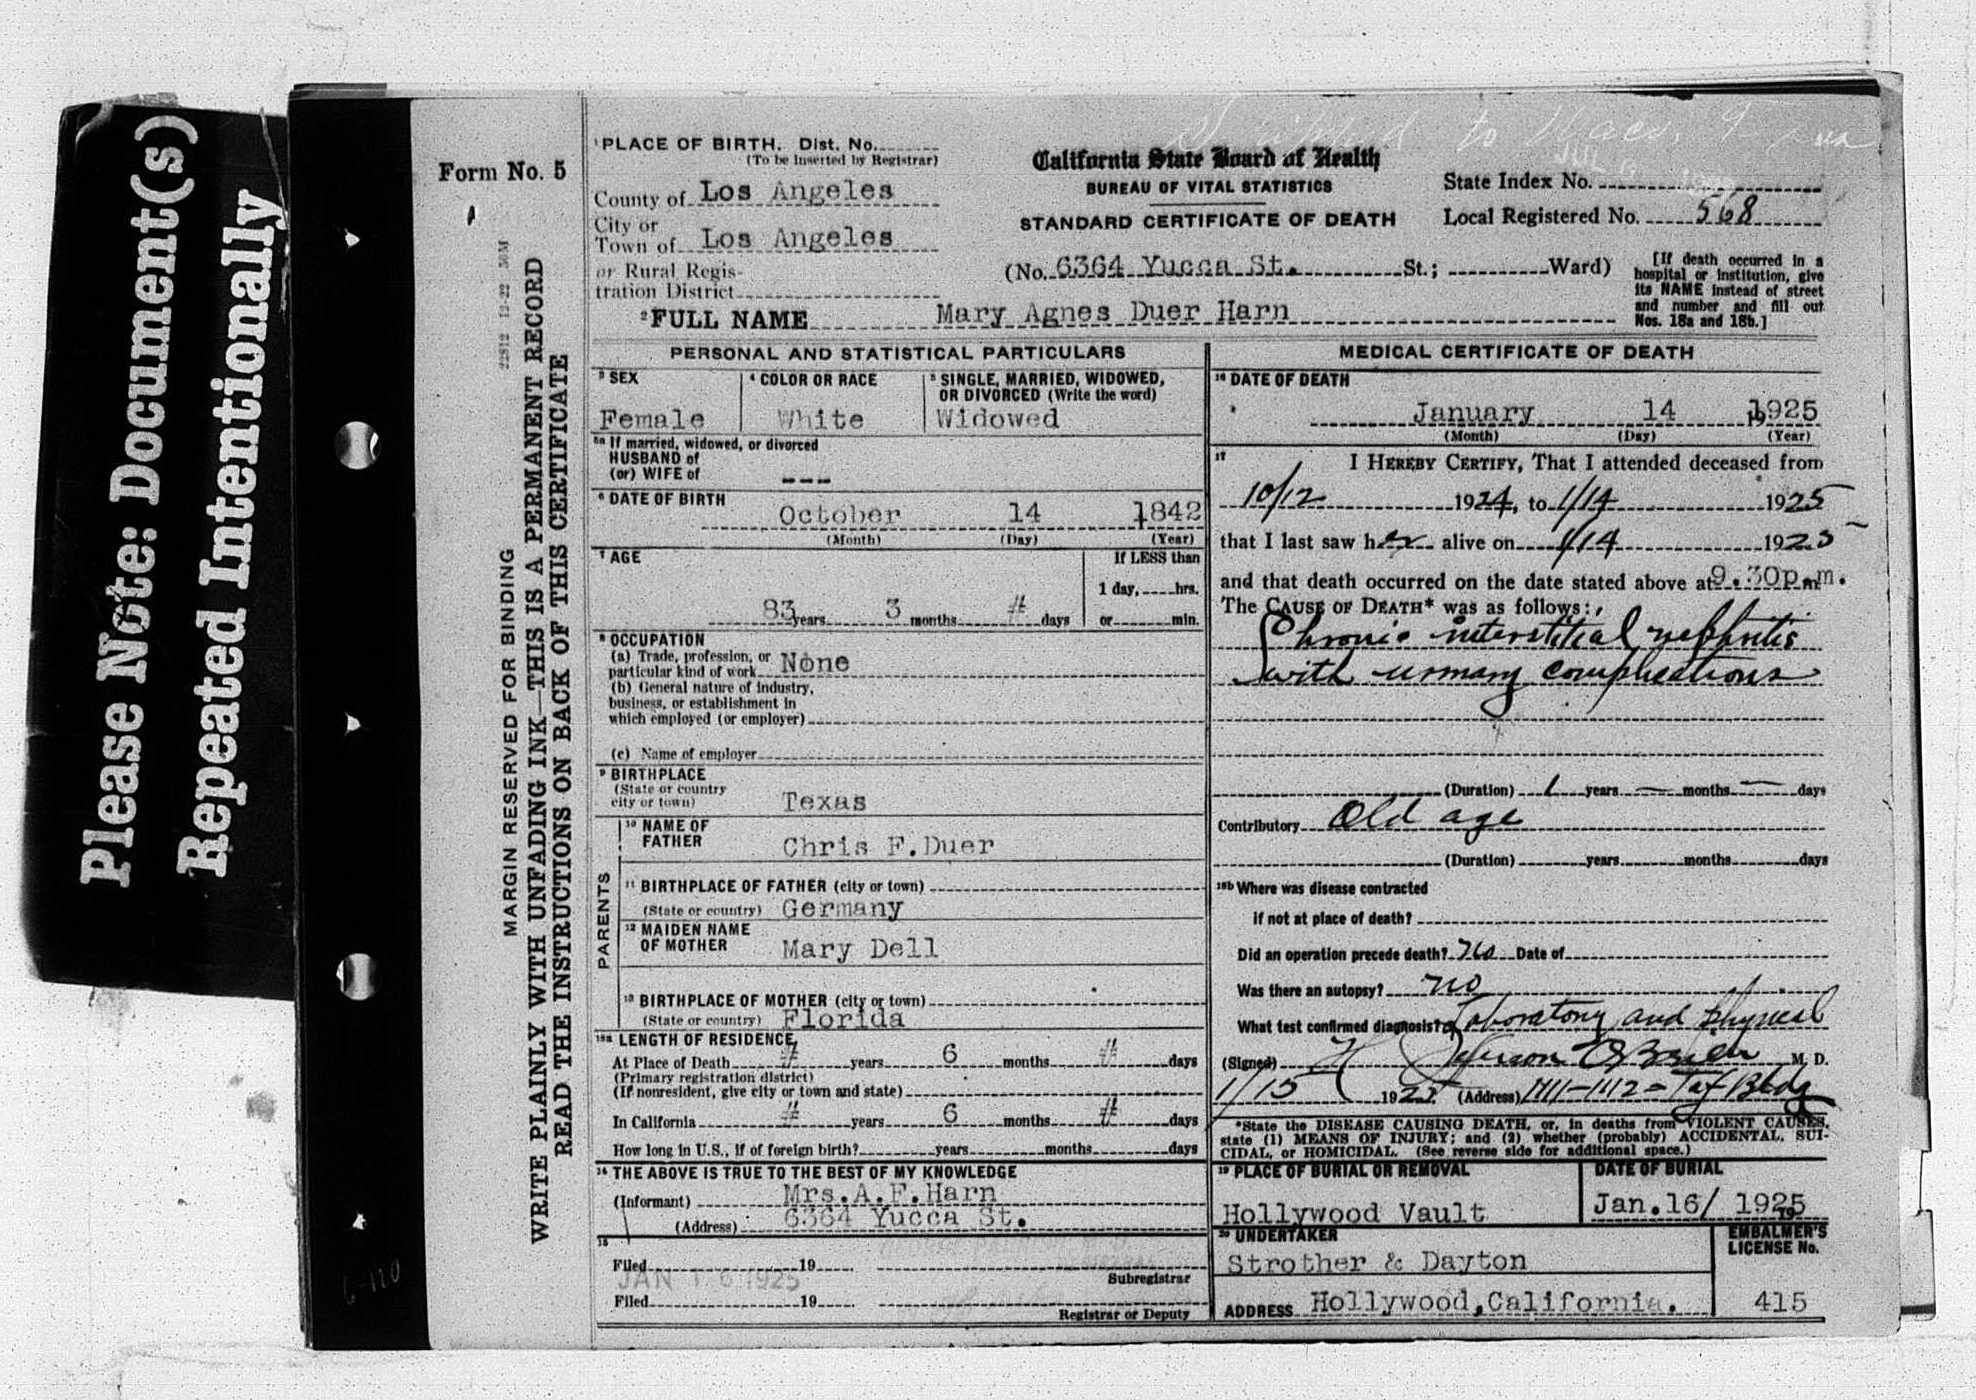 Please Note: Document(s)
Repeated Intentionally
Form No. 5
22812 12-22 50M
MARGIN RESERVED FOR BINDING
WRITE PLAINLY WITH UNFADING INK—THIS IS A PERMANENT RECORD
READ THE INSTRUCTIONS ON BACK OF THIS CERTIFICATE
to Waco,
JUL
1 PLACE OF BIRTH. Dist. No.
(To be inserted by Registrar)
County of Los Angeles
City or
Town of Los Angeles
or Rural Regis-
tration District
California State Board of Health
BUREAU OF VITAL STATISTICS
STANDARD CERTIFICATE OF DEATH
State Index No.
Local Registered No. 568
(No. 6364 Yucca St. St.; Ward)
[If death occurred in a
hospital or institution, give
its NAME instead of street
and number and fill out
Nos. 18a and 18b.]
2 FULL NAME Mary Agnes Duer Harn
PERSONAL AND STATISTICAL PARTICULARS
3 SEX
Female
4 COLOR OR RACE
White
5 SINGLE, MARRIED, WIDOWED,
OR DIVORCED (Write the word)
Widowed
5a If married, widowed, or divorced
HUSBAND of
(or) WIFE of ---
6 DATE OF BIRTH
October 14 1842
(Month) (Day) (Year)
7 AGE
83 years 3 months # days
If LESS than
1 day, hrs.
or min.
8 OCCUPATION
(a) Trade, profession, or
particular kind of work None
(b) General nature of industry,
business, or establishment in
which employed (or employer)
(c) Name of employer
9 BIRTHPLACE
(State or country
city or town) Texas
PARENTS
10 NAME OF
FATHER Chris F.Duer
11 BIRTHPLACE OF FATHER (city or town)
(State or country) Germany
12 MAIDEN NAME
OF MOTHER Mary Dell
13 BIRTHPLACE OF MOTHER (city or town)
(State or country) Florida
18a LENGTH OF RESIDENCE
At Place of Death # years 6 months # days
(Primary registration district)
(If nonresident, give city or town and state)
In California # years 6 months # days
How long in U.S., if of foreign birth? years months days
14 THE ABOVE IS TRUE TO THE BEST OF MY KNOWLEDGE
(Informant) Mrs.A.F.Harn
(Address) 6364 Yucca St.
15
Filed 19
JAN 16 1925
Subregistrar
Filed 19
Registrar or Deputy
MEDICAL CERTIFICATE OF DEATH
16 DATE OF DEATH
January 14 1925
(Month) (Day) (Year)
17 I HEREBY CERTIFY, That I attended deceased from
10/12 1924, to 1/14 1925
that I last saw her alive on 1/14 1925
and that death occurred on the date stated above at 9.30p.m.
The CAUSE OF DEATH* was as follows:
Chronic interstitial nephritis
with urinary complications
(Duration) 1 years — months — days
Contributory Old age
(Duration) years months days
18b Where was disease contracted
if not at place of death?
Did an operation precede death? no Date of
Was there an autopsy? no
What test confirmed diagnosis? Laboratory and physical
(Signed) O'Brien M. D.
1/15 1925 (Address) 1111-1112- Taft Bldg
*State the DISEASE CAUSING DEATH, or, in deaths from VIOLENT CAUSES,
state (1) MEANS OF INJURY; and (2) whether (probably) ACCIDENTAL, SUI-
CIDAL, or HOMICIDAL. (See reverse side for additional space.)
19 PLACE OF BURIAL OR REMOVAL
Hollywood Vault
DATE OF BURIAL
Jan.16/ 1925
20 UNDERTAKER
Strother & Dayton
ADDRESS Hollywood,California.
EMBALMER'S
LICENSE No.
415